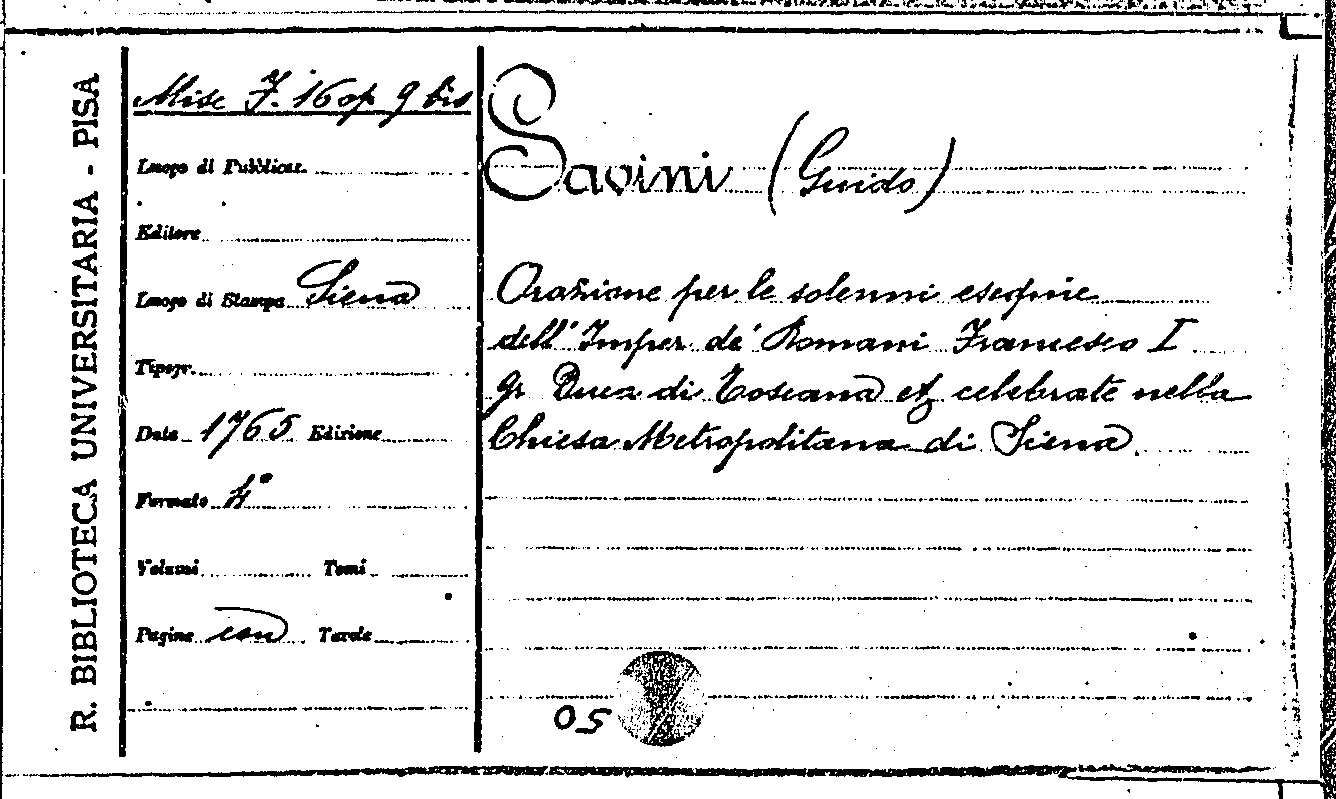 R. BIBLIOTECA UNIVERSITARIA - PISA
Misc F. 16 op 9 bis
Luogo di Pubblicaz.
Editore
Luogo di Stampa Siena
Tipogr.
Data 1765 Edizione
Formato 4°
Volumi Tomi
Pagine Tavole
Savini (Guido)
Orazione per le solenni esequie
dell' Imper de' Romani Francesco I
gr Duca di Toscana et celebrate nella
Chiesa Metropolitana di Siena.
05